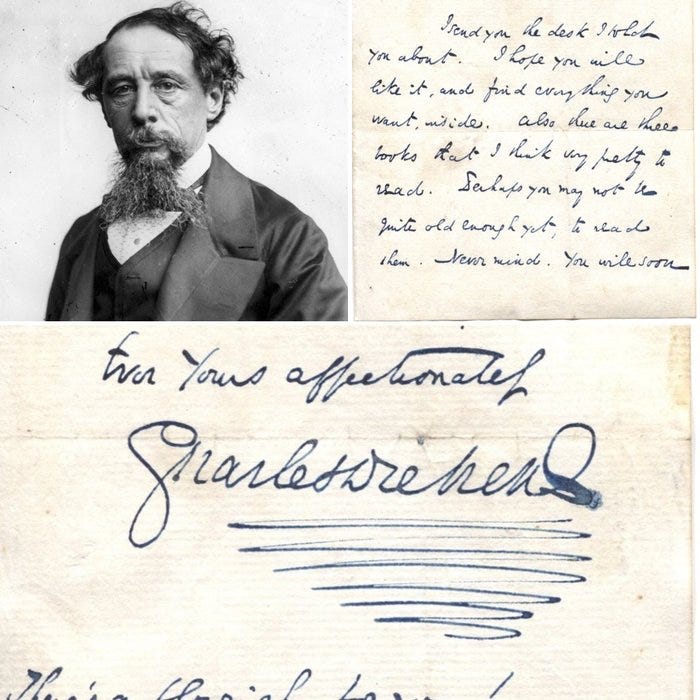 I send you the desk I told
you about. I hope you will
like it, and find everything you
want, inside. Also there are three
books that I think very pretty to
read. Perhaps you may not be
quite old enough yet, to read
them. Never mind. You will soon
Ever Yours affectionately
Charles Dickens